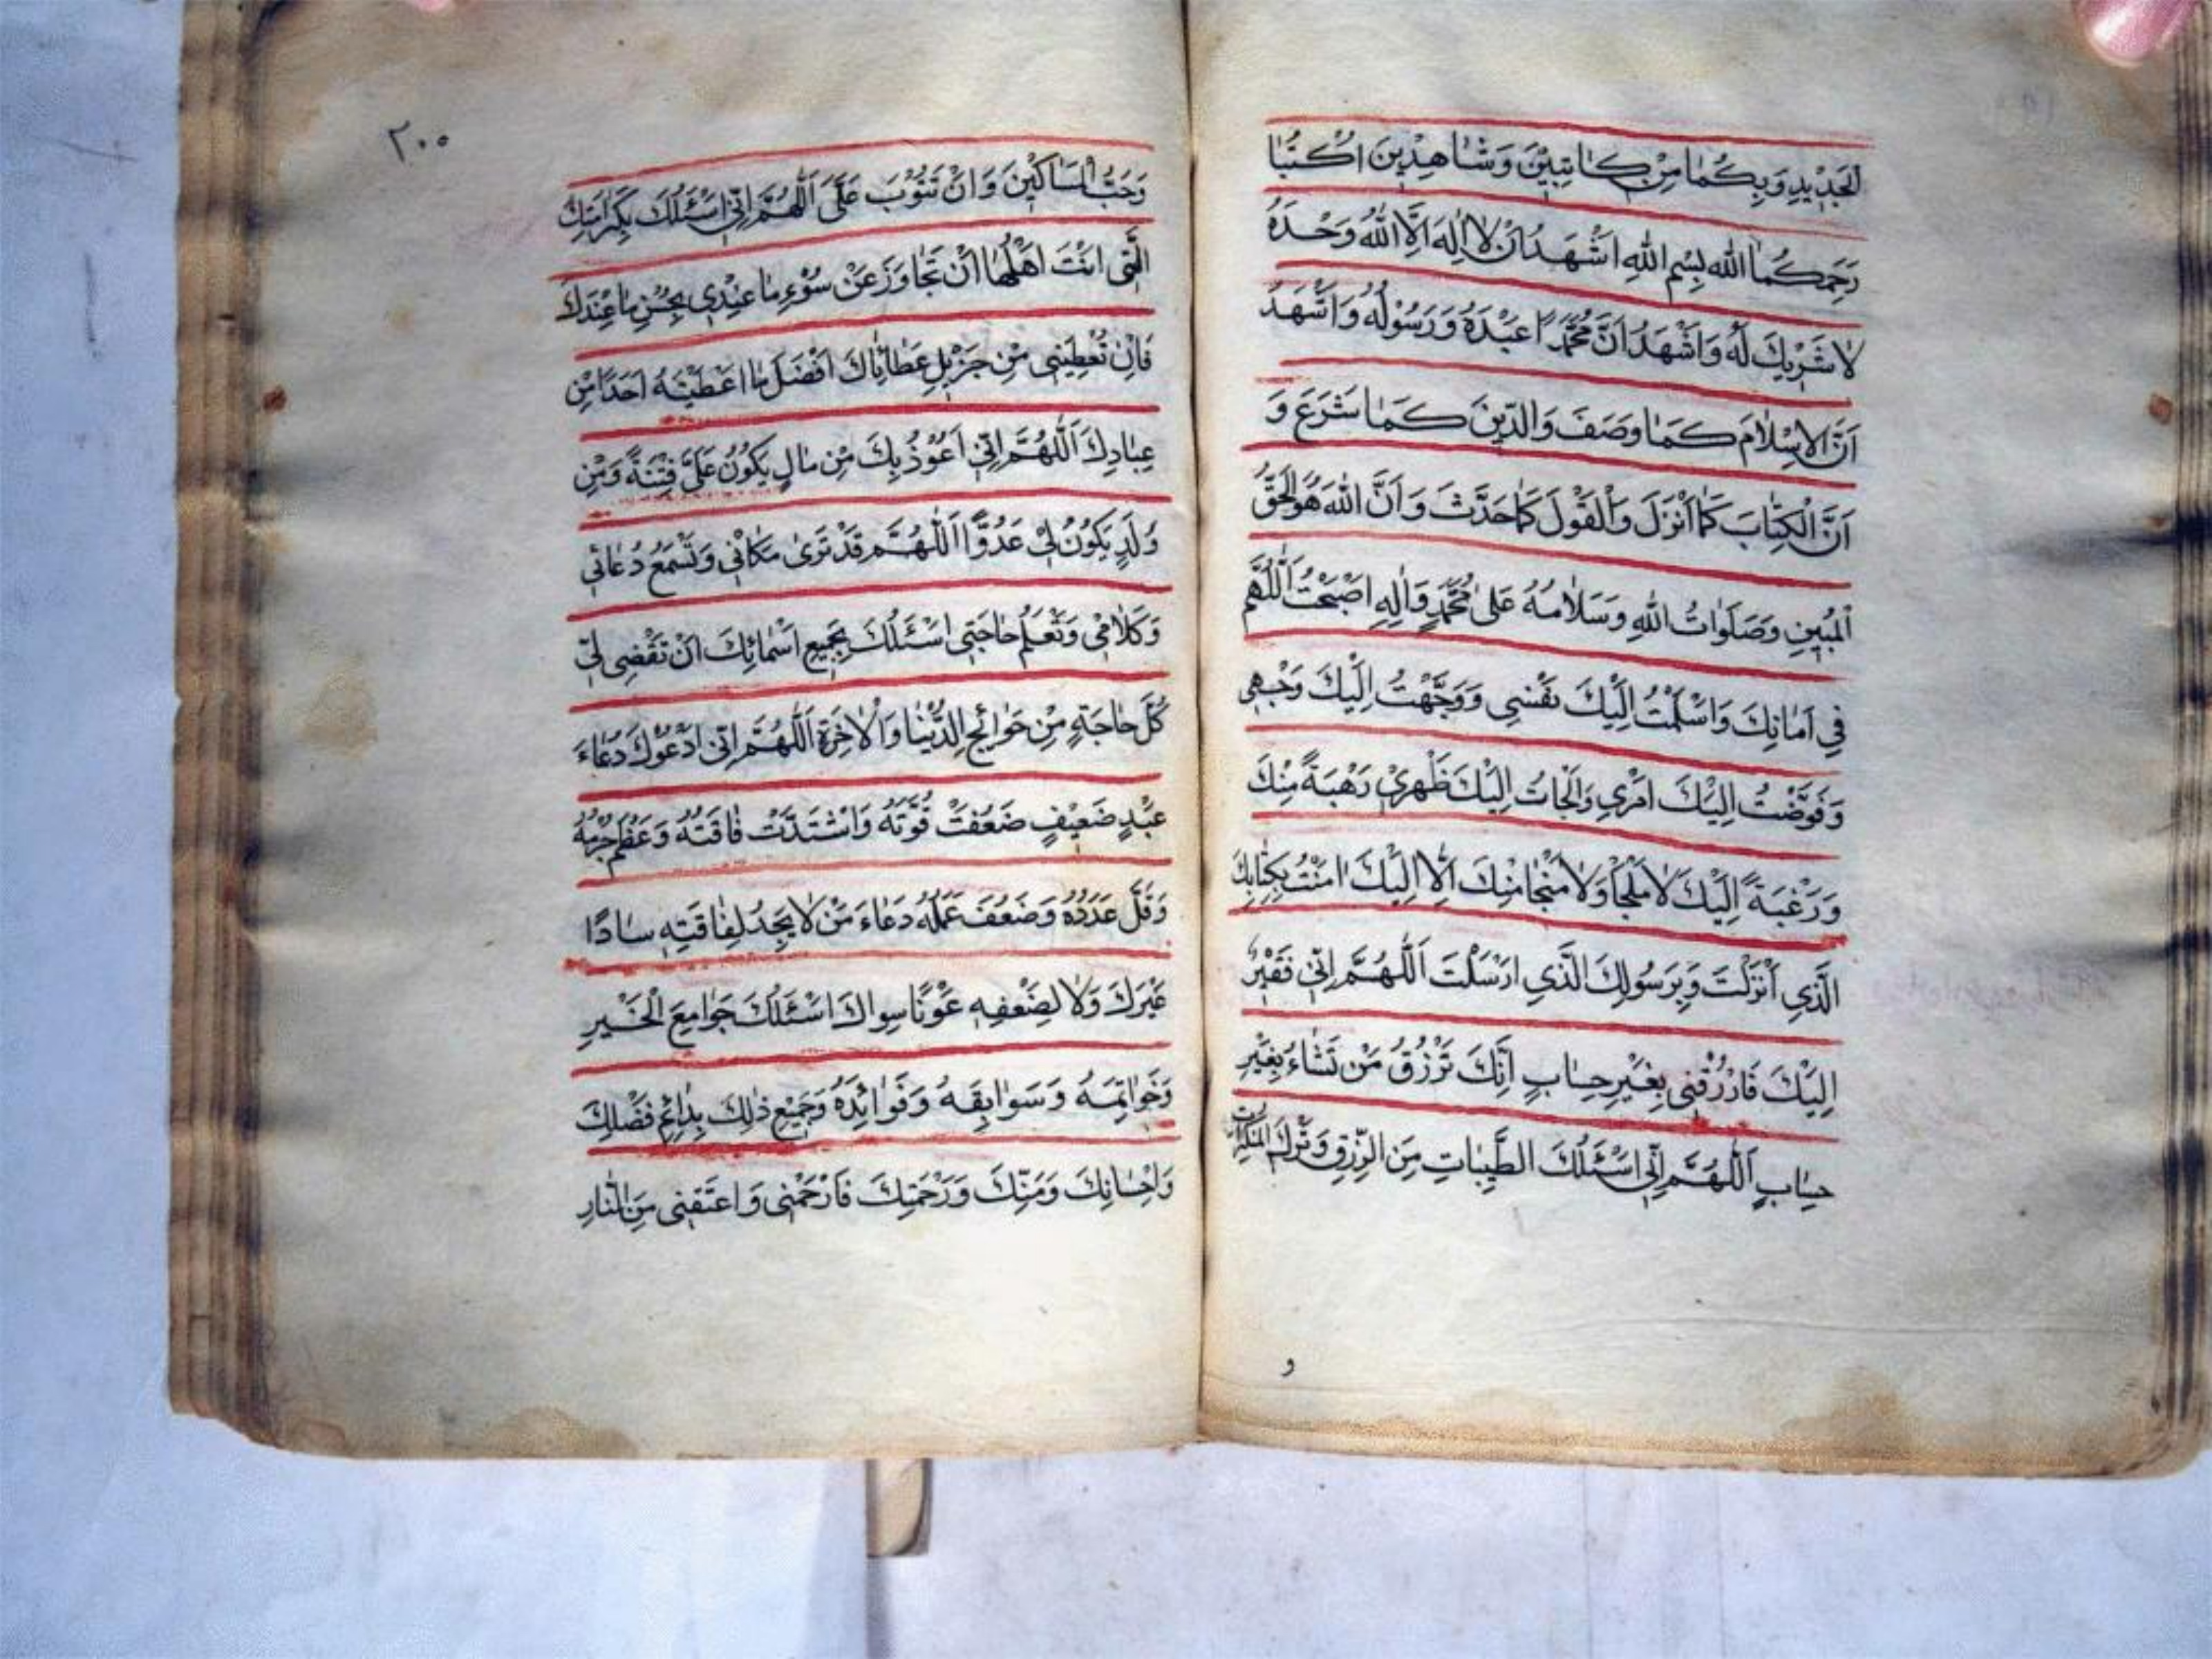 الْجَدِيدِ وَبِكُمَا مِنْ كَاتِبَيْنِ وَشَاهِدَيْنِ اكْتُبَا
رَحِمَكُمَا اللهُ بِسْمِ اللهِ اَشْهَدُ اَنْ لَا اِلٰهَ اِلَّا اللهُ وَحْدَهُ
لَا شَرِيْكَ لَهُ وَاَشْهَدُ اَنَّ مُحَمَّدًا عَبْدُهُ وَرَسُوْلُهُ وَاَشْهَدُ
اَنَّ الْاِسْلَامَ كَمَا وَصَفَ وَالدِّينَ كَمَا شَرَعَ وَ
اَنَّ الْكِتَابَ كَمَا اَنْزَلَ وَالْقَوْلَ كَمَا حَدَّثَ وَاَنَّ اللهَ هُوَ الْحَقُّ
الْمُبِينِ وَصَلَوَاتُ اللهِ وَسَلَامُهُ عَلَى مُحَمَّدٍ وَاٰلِهِ اَصْبَحْتُ اَللّٰهُمَّ
فِي اَمَانِكَ وَاَسْلَمْتُ اِلَيْكَ نَفْسِي وَوَجَّهْتُ اِلَيْكَ وَجْهِي
وَفَوَّضْتُ اِلَيْكَ اَمْرِي وَاَلْجَاْتُ اِلَيْكَ ظَهْرِيْ رَهْبَةً مِنْكَ
وَرَغْبَةً اِلَيْكَ لَا مَلْجَأَ وَلَا مَنْجَا مِنْكَ اِلَّا اِلَيْكَ اٰمَنْتُ بِكِتَابِكَ
الَّذِي اَنْزَلْتَ وَبِرَسُولِكَ الَّذِي اَرْسَلْتَ اَللّٰهُمَّ اِنِّي فَقِيْرٌ
اِلَيْكَ فَارْزُقْنِي بِغَيْرِ حِسَابٍ اِنَّكَ تَرْزُقُ مَنْ تَشَاءُ بِغَيْرِ
حِسَابٍ اَللّٰهُمَّ اِنِّي اَسْئَلُكَ الطَّيِّبَاتِ مِنَ الرِّزْقِ وَتَرْكَ الْمُنْكَرَاتِ
و
٢٠٠
وَحُبَّ الْمَسَاكِيْنِ وَاَنْ تَتُوْبَ عَلَيَّ اَللّٰهُمَّ اِنِّي اَسْئَلُكَ بِكَرَامَتِكَ
الَّتِي اَنْتَ اَهْلُهَا اَنْ تَجَاوَزَ عَنْ سُوْءِ مَا عِنْدِي بِحُسْنِ مَا عِنْدَكَ
فَاِنْ تُعْطِيَنِي مِنْ جَزِيْلِ عَطَائِكَ اَفْضَلَ مَا اَعْطَيْتَهُ اَحَدًا مِنْ
عِبَادِكَ اَللّٰهُمَّ اِنِّي اَعُوْذُ بِكَ مِنْ مَالٍ يَكُونُ عَلَيَّ فِتْنَةً وَمِنْ
وَلَدٍ يَكُوْنُ لِيْ عَدُوًّا اَللّٰهُمَّ قَدْ تَرَىٰ مَكَانِي وَتَسْمَعُ دُعَائِي
وَكَلَامِي وَتَعْلَمُ حَاجَتِي اَسْئَلُكَ بِجَمِيعِ اَسْمَائِكَ اَنْ تَقْضِيَ لِي
كُلَّ حَاجَةٍ مِنْ حَوَائِجِ الدُّنْيَا وَالْاٰخِرَةِ اَللّٰهُمَّ اِنِّي اَدْعُوْكَ دُعَاءَ
عَبْدٍ ضَعِيْفٍ ضَعُفَتْ قُوَّتُهُ وَاشْتَدَّتْ فَاقَتُهُ وَعَظُمَ جُرْمُهُ
وَقَلَّ عَدَدُهُ وَضَعُفَ عَمَلُهُ دُعَاءَ مَنْ لَا يَجِدُ لِفَاقَتِهِ سَادًّا
غَيْرَكَ وَلَا لِضَعْفِهِ عَوْنًا سِوَاكَ اَسْئَلُكَ جَوَامِعَ الْخَيْرِ
وَخَوَاتِمَهُ وَسَوَابِقَهُ وَفَوَائِدَهُ وَجَمِيْعَ ذٰلِكَ بِدَائِمِ فَضْلِكَ
وَاِحْسَانِكَ وَمَنِّكَ وَرَحْمَتِكَ فَارْحَمْنِي وَاعْتِقْنِي مِنَ النَّارِ